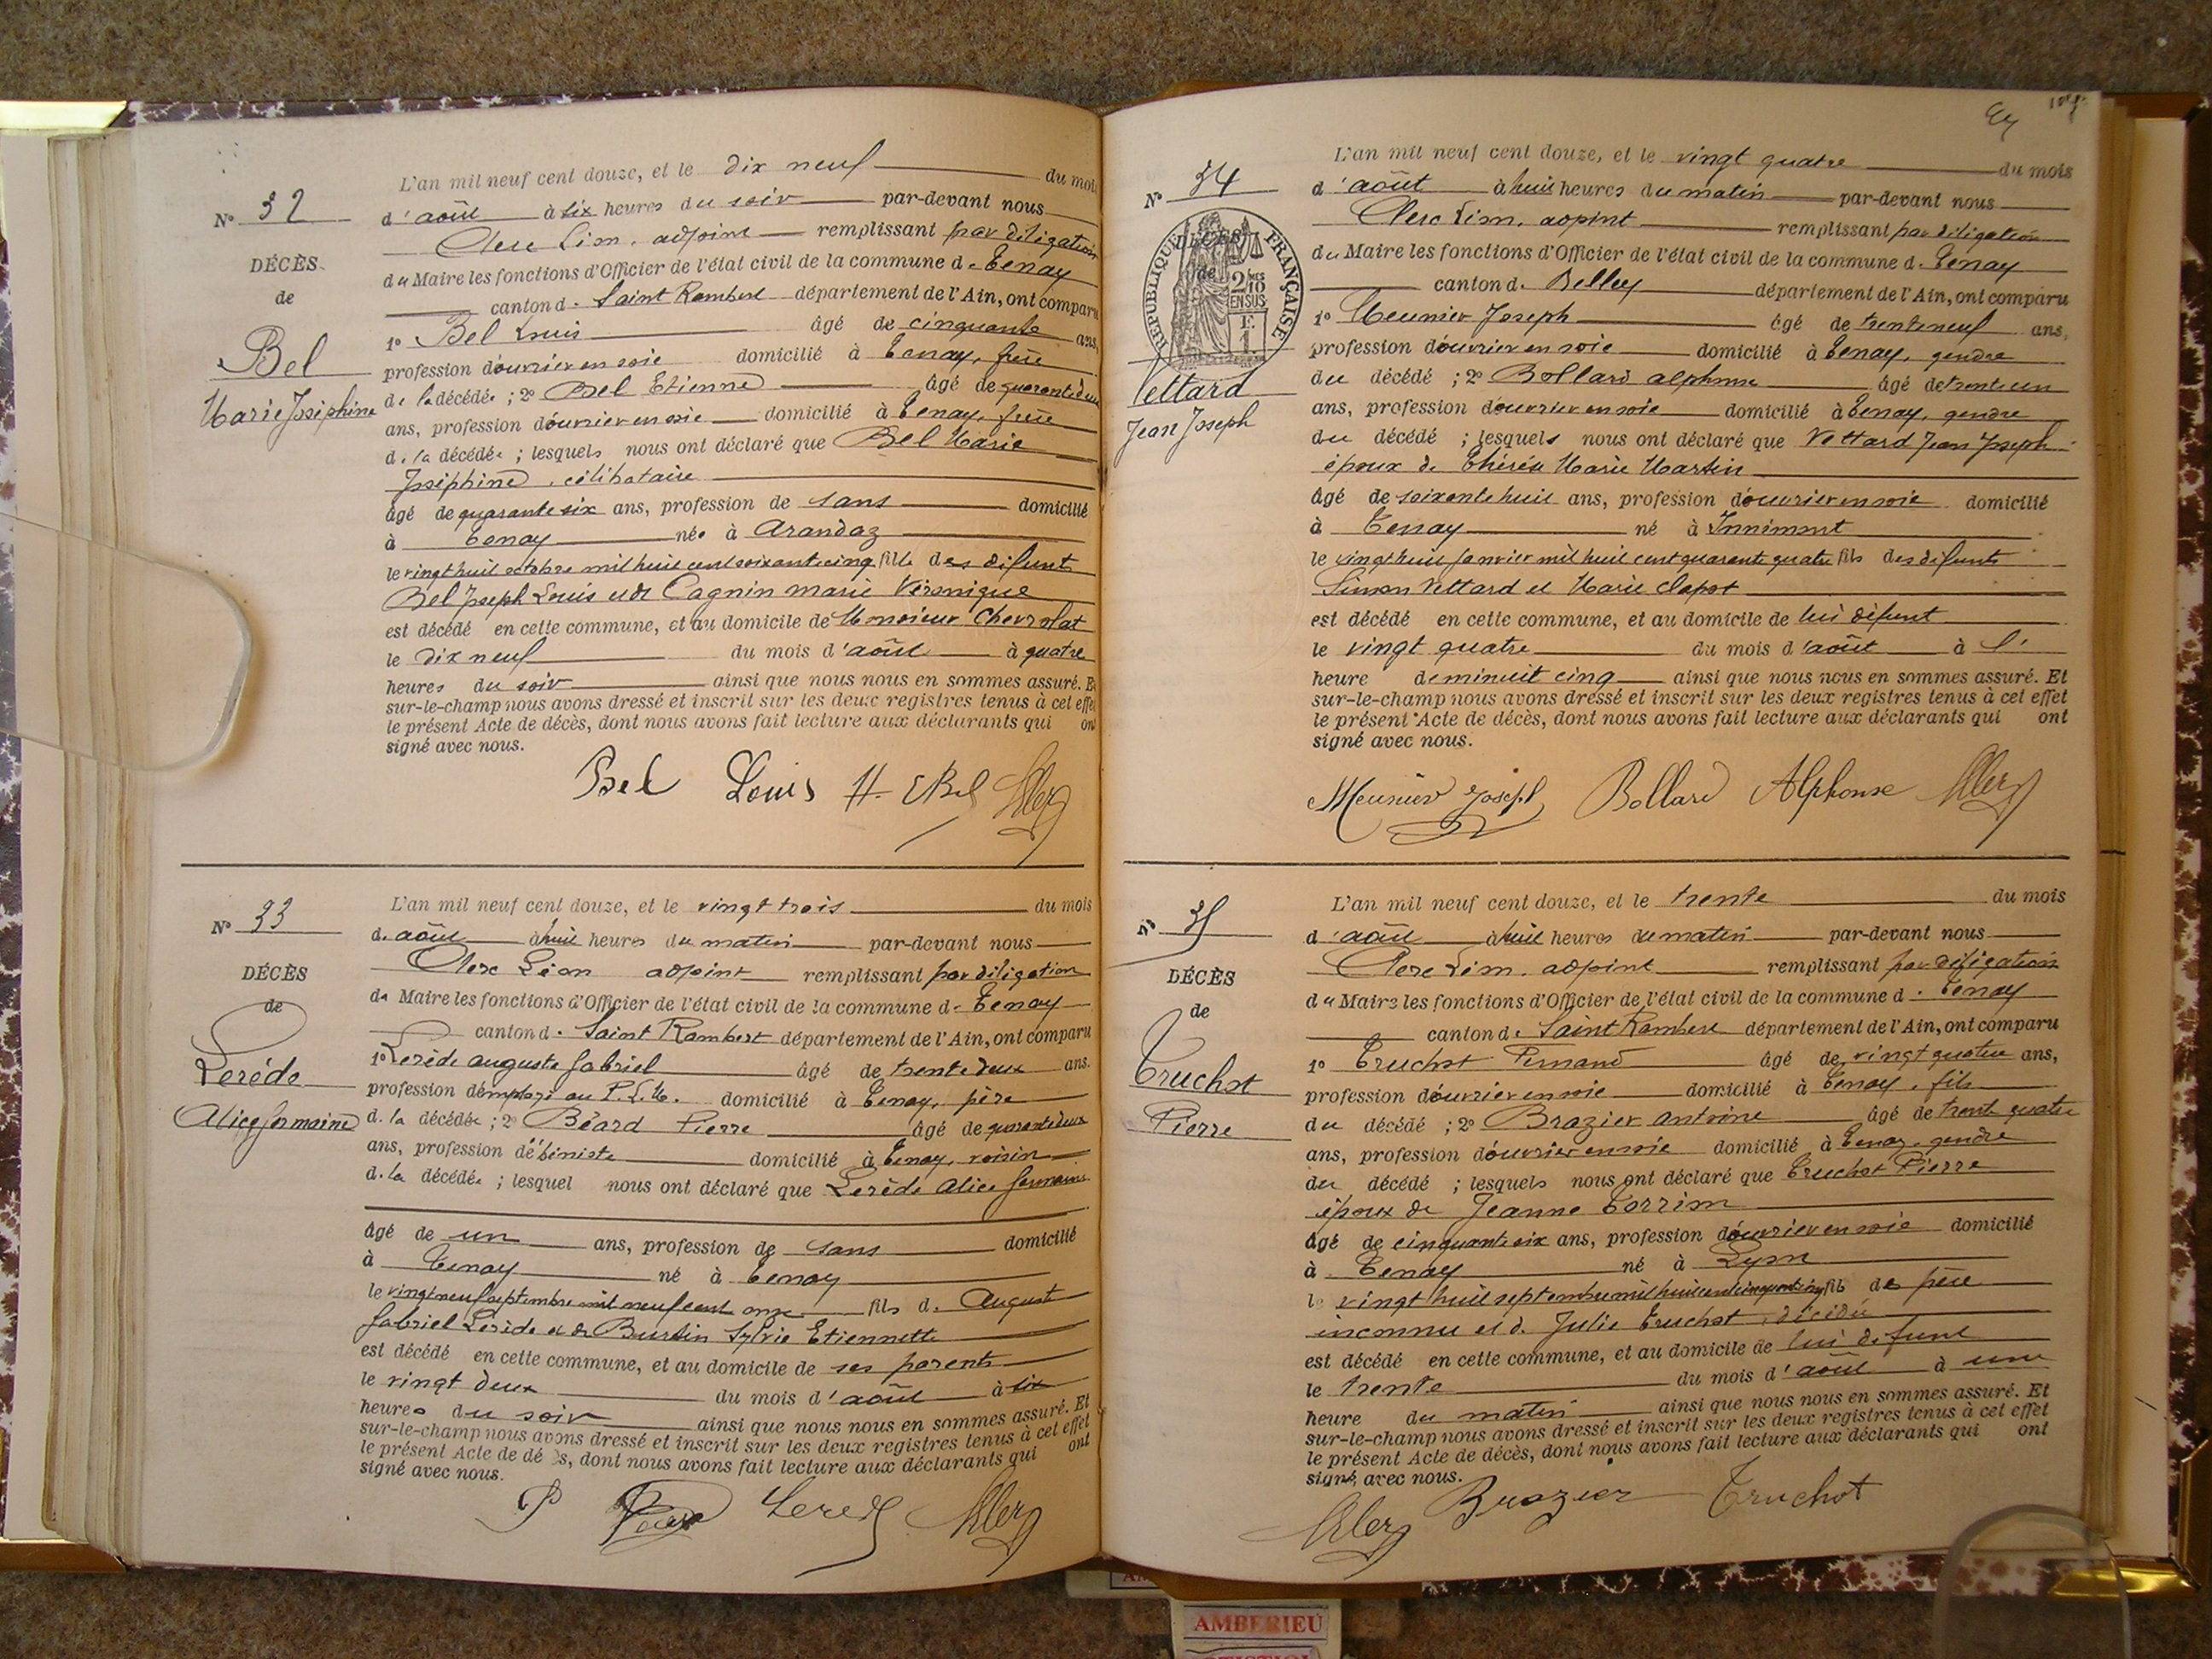 L'an mil neuf cent douze, et le dix neuf du mois
N° 32
d'août à six heures du soir par-devant nous
Clerc Léon, adjoint remplissant par délégation
du Maire les fonctions d'Officier de l'état civil de la commune de Tenay
DÉCÈS
de
Bel
Marie Joséphine
canton de Saint Rambert département de l'Ain, ont comparu
1° Bel Louis âgé de cinquante ans,
profession d'ouvrier en soie domicilié à Tenay, frère
de la décédée ; 2° Bel Etienne âgé de quarante deux
ans, profession d'ouvrier en soie domicilié à Tenay, frère
de la décédée ; lesquels nous ont déclaré que Bel Marie
Joséphine, célibataire
âgé de quarante six ans, profession de sans domicilié
à Tenay née à Arandaz
le vingt huit octobre mil huit cent soixante cinq fille des défunts
Bel Joseph Louis et de Cagnin Marie Véronique
est décédé en cette commune, et au domicile de Monsieur Chevrolat
le dix neuf du mois d'août à quatre
heures du soir ainsi que nous nous en sommes assuré. Et
sur-le-champ nous avons dressé et inscrit sur les deux registres tenus à cet effet
le présent Acte de décès, dont nous avons fait lecture aux déclarants qui ont
signé avec nous.
Bel Louis Bel Clerc
N° 33
DÉCÈS
de
Lerède
Alice Germaine
L'an mil neuf cent douze, et le vingt trois du mois
d'août à huit heures du matin par-devant nous
Clerc Léon adjoint remplissant par délégation
du Maire les fonctions d'Officier de l'état civil de la commune de Tenay
canton de Saint Rambert département de l'Ain, ont comparu
1° Lerède Auguste Gabriel âgé de trente deux ans.
profession d'employé au P. L. M. domicilié à Tenay, père
de la décédée ; 2° Béard Pierre âgé de quarante deux
ans, profession d'ébéniste domicilié à Tenay, voisin
de la décédée ; lesquel nous ont déclaré que Lerède Alice Germaine
âgé de un ans, profession de sans domicilié
à Tenay né à Tenay
le vingt neuf septembre mil neuf cent onze fils d. Auguste
Gabriel Lerède et de Burtin Sylvie Etiennette
est décédé en cette commune, et au domicile de ses parents
le vingt deux du mois d'août à six
heures du soir ainsi que nous nous en sommes assuré. Et
sur-le-champ nous avons dressé et inscrit sur les deux registres tenus à cet effet
le présent Acte de décès, dont nous avons fait lecture aux déclarants qui ont
signé avec nous.
Lerède Clerc
N° 34
L'an mil neuf cent douze, et le vingt quatre du mois
d'août à huit heures du matin par-devant nous
Clerc Léon, adjoint remplissant par délégation
du Maire les fonctions d'Officier de l'état civil de la commune d. Tenay
canton d. Belley département de l'Ain, ont comparu
RÉPUBLIQUE FRANÇAISE
DÉCÈS
de
2/10 EN SUS
F. 1
Vettard
Jean Joseph
1° Meunier Joseph âgé de trente neuf ans,
profession d'ouvrier en soie domicilié à Tenay, gendre
du décédé ; 2° Bollard Alphonse âgé de trente un
ans, profession d'ouvrier en soie domicilié à Tenay, gendre
du décédé ; lesquels nous ont déclaré que Vettard Jean Joseph
époux de Thérèse Marie Martin
âgé de soixante huit ans, profession d'ouvrier en soie domicilié
à Tenay né à Innimont
le vingt huit janvier mil huit cent quarante quatre fils des défunts
Simon Vettard et Marie Clapot
est décédé en cette commune, et au domicile de lui défunt
le vingt quatre du mois d'août à l'
heure de minuit cinq ainsi que nous nous en sommes assuré. Et
sur-le-champ nous avons dressé et inscrit sur les deux registres tenus à cet effet
le présent Acte de décès, dont nous avons fait lecture aux déclarants qui ont
signé avec nous.
Meunier Joseph Bollard Alphonse Clerc
N° 35
DÉCÈS
de
Truchot
Pierre
L'an mil neuf cent douze, et le trente du mois
d'août à huit heures du matin par-devant nous
Clerc Léon, adjoint remplissant par délégation
du Maire les fonctions d'Officier de l'état civil de la commune d. Tenay
canton de Saint Rambert département de l'Ain, ont comparu
1° Truchot Fernand âgé de vingt quatre ans,
profession d'ouvrier en soie domicilié à Tenay, fils
du décédé ; 2° Brazier Antoine âgé de trente quatre
ans, profession d'ouvrier en soie domicilié à Tenay, gendre
du décédé ; lesquels nous ont déclaré que Truchot Pierre
époux de Jeanne Torrion
âgé de cinquante six ans, profession d'ouvrier en soie domicilié
à Tenay né à Lyon
le vingt huit septembre mil huit cent cinquante cinq fils de père
inconnu et d. Julie Truchot, décédée
est décédé en cette commune, et au domicile de lui défunt
le trente du mois d'août à une
heure du matin ainsi que nous nous en sommes assuré. Et
sur-le-champ nous avons dressé et inscrit sur les deux registres tenus à cet effet
le présent Acte de décès, dont nous avons fait lecture aux déclarants qui ont
signé avec nous.
Clerc Brazier Truchot
AMBERIEU